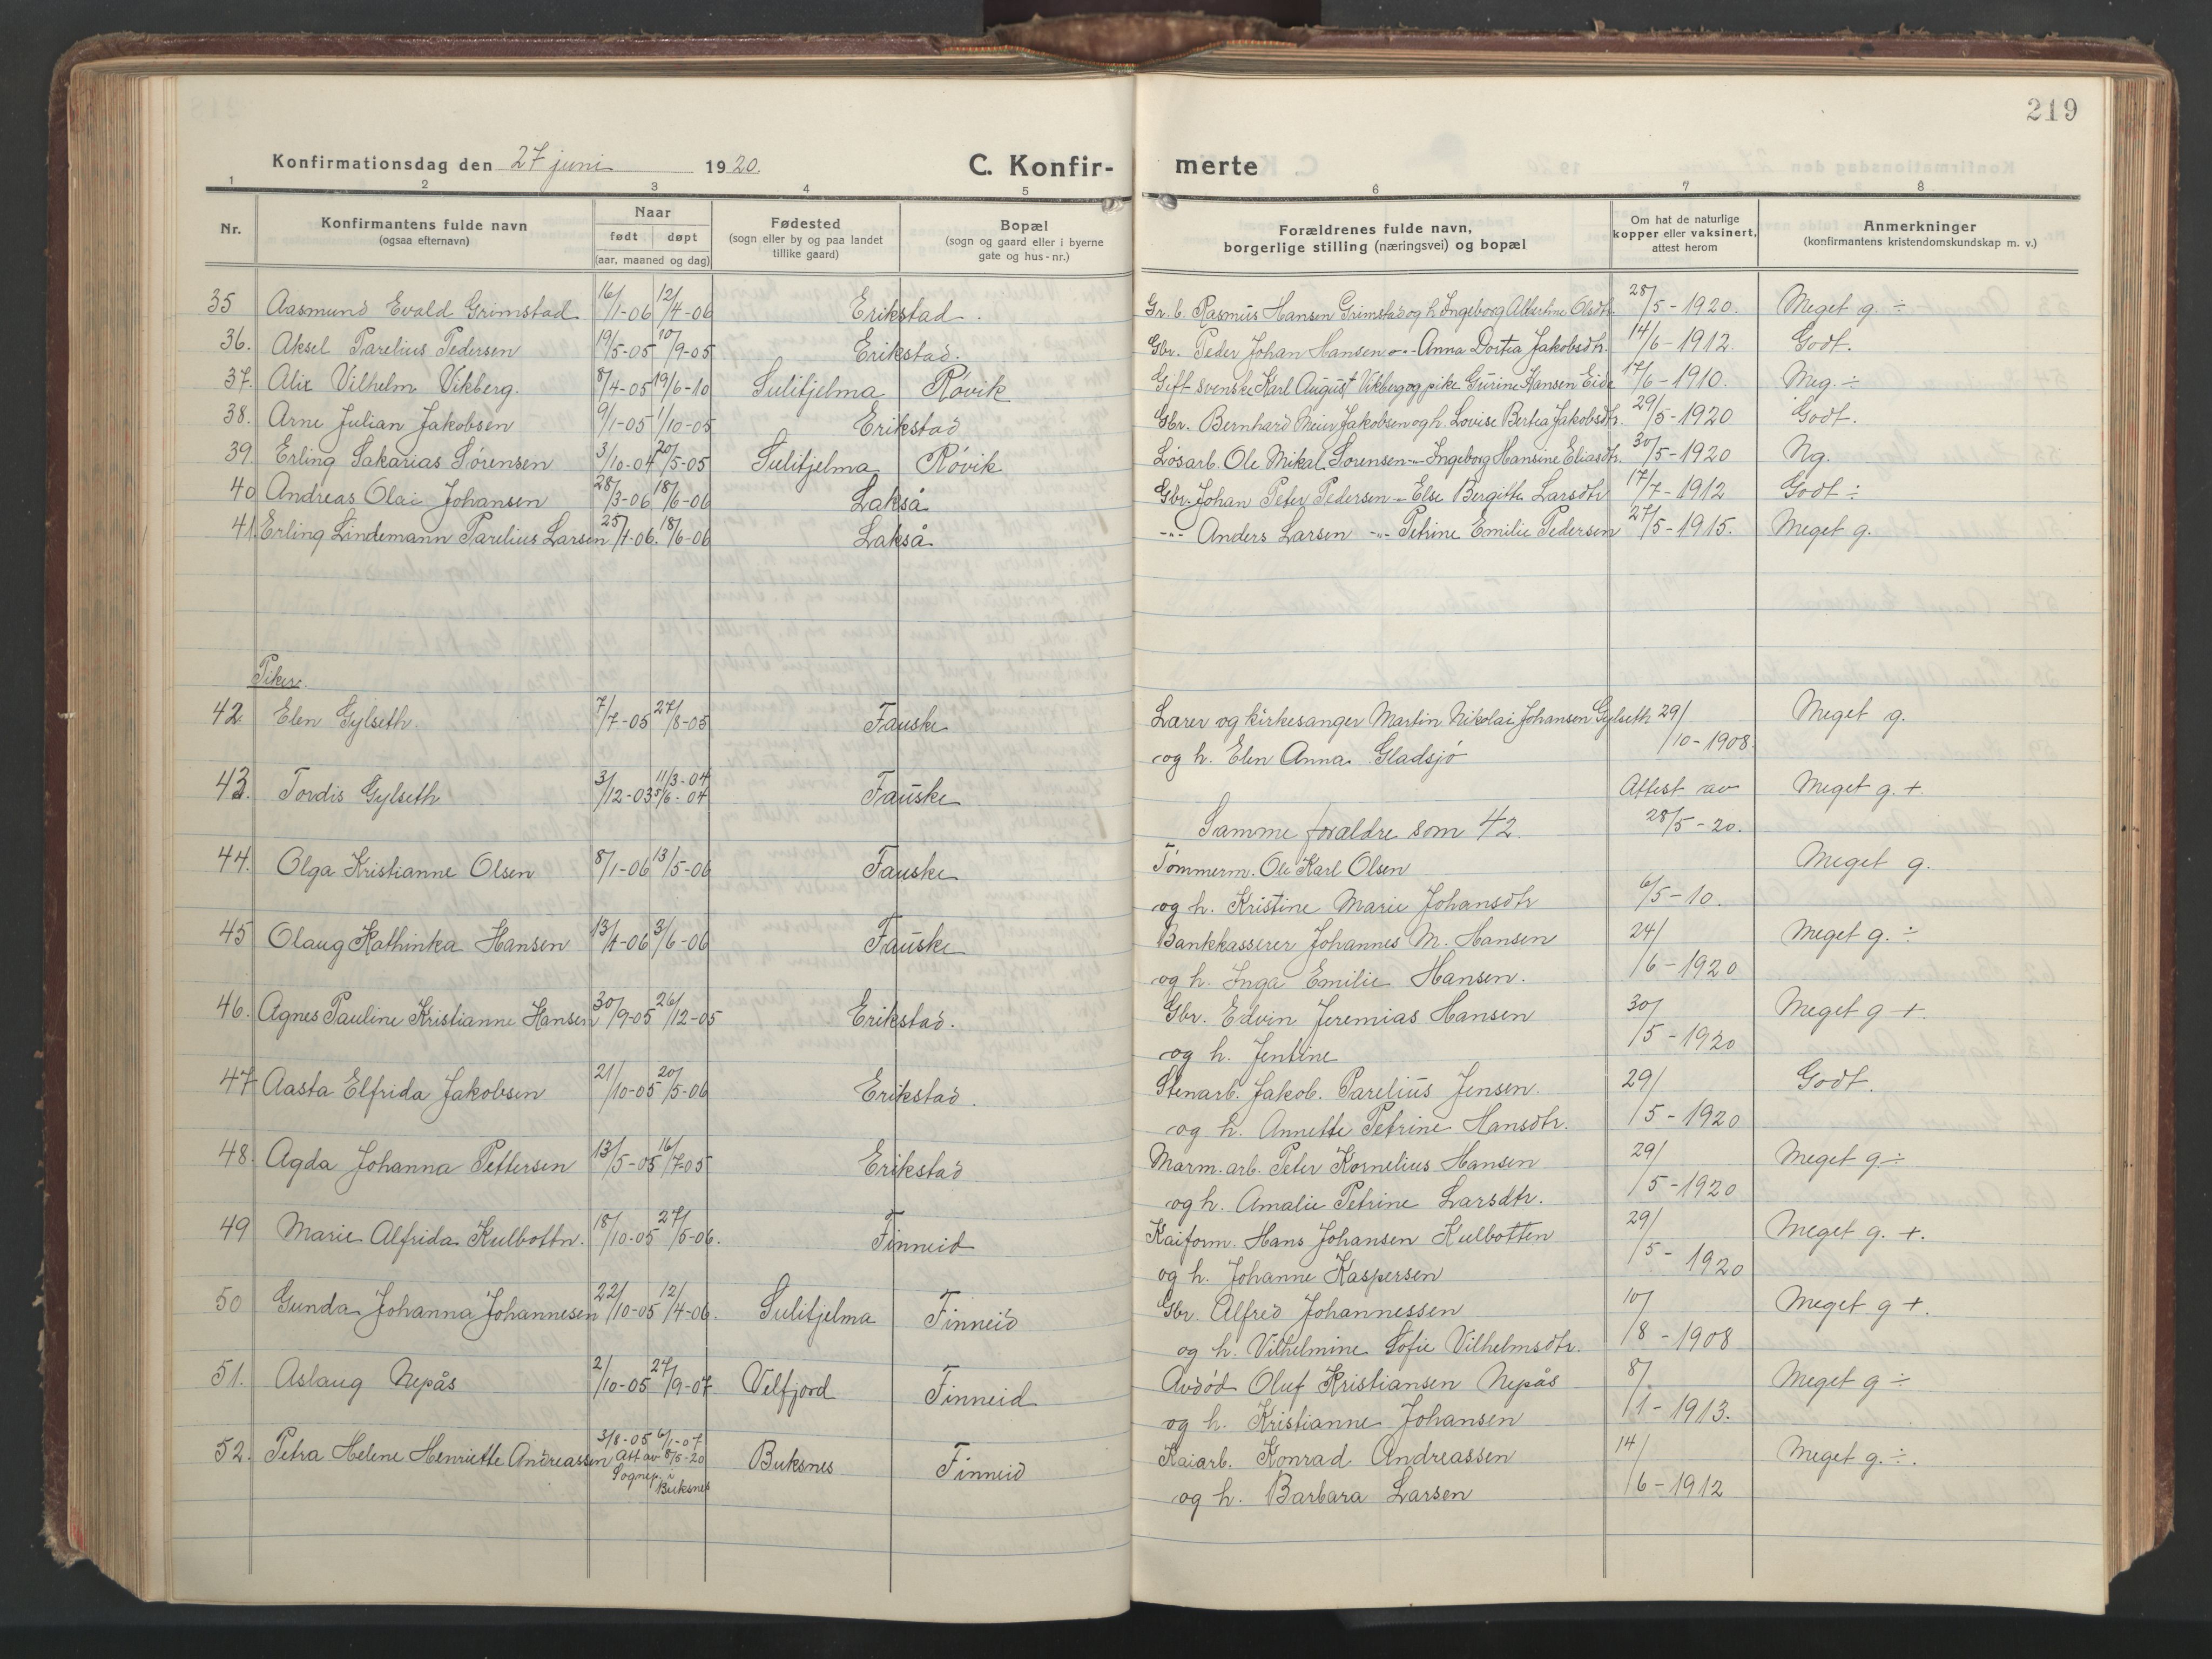 219
Konfirmationsdag den 27 juni 1920. C. Konfirmerte
1 2 3 4 5 6 7 8
Nr. Konfirmantens fulde navn (ogsaa efternavn) Naar født døpt (aar, maaned og dag) Fødested (sogn eller by og paa landet tillike gaard) Bopæl (sogn og gaard eller i byerne gate og hus-nr.) Forældrenes fulde navn, borgerlige stilling (næringsvei) og bopæl Om hat de naturlige kopper eller vaksinert, attest herom Anmerkninger (konfirmantens kristendomskundskap m. v.)
35 Aasmund Evald Grimstad 16/1-06 12/4-06 Erikstad. Gr.b. Rasmus Hansen Grimstad og h. Ingeborg Albertine Olsdtr. 28/5-1920. Meget g. ÷
36. Aksel Parelius Pedersen 19/5-05 10/9-05 Erikstad. Gbr. Peder Johan Hansen -"- Anna Dortea Jakobsdtr. 14/6-1912. Godt.
37. Alix Vilhelm Vikberg. 8/4-05 19/6-10 Sulitjelma Røvik Gift svenske Karl August Vikberg og pike Gurine Hansen Eide 17/6-1910. Meg. ÷
38. Arne Julian Jakobsen 9/1-05 1/10-05 Erikstad Gbr. Bernhard Meier Jakobsen og h. Lovise Bertea Jakobsdtr. 29/5-1920 Godt.
39. Erling Sakarias Sørensen 3/10-04 20/5-05 Sulitjelma Røvik Løsarb. Ole Mikal Sørensen -"- Ingeborg Hansine Eliasdtr. 30/5-1920 Ng.
40 Andreas Olai Johansen 28/3-06 18/6-06 Lakså Gbr. Johan Peter Pedersen -"- Else Bergitte Larsdtr 17/7-1912 Godt ÷
41. Erling Lindemann Parelius Larsen 25/1-06. 18/6-06 Lakså -"- Anders Larsen -"- Petrine Emilie Pedersen 27/5-1915. Meget g.
Piker.
42. Elen Gylseth. 7/7-05 27/8-05 Fauske Lærer og kirkesanger Martin Nikolai Johansen Gylseth 29/10-1908. Meget g.
og h. Elen Anna Gladsjø
43. Tordis Gylseth 3/12-03 11/3-04 5/6-04 Fauske Attest av Meget g. +
Samme forældre som 42. 28/5-20.
44. Olga Kristianne Olsen 8/1-06 13/5-06 Fauske Tømmerm. Ole Karl Olsen Meget g.
og h. Kristine Marie Johansdtr 6/5-10.
45 Olaug Kathinka Hansen 13/4-06 3/6-06 Fauske Bankkasserer Johannes M. Hansen 24/6-1920 Meget g. ÷
og h. Inga Emilie Hansen.
46. Agnes Pauline Kristianne Hansen 30/9-05 26/12-05 Erikstad. Gbr. Edvin Jeremias Hansen 30/5-1920 Meget g +.
og h. Jentine
47 Aasta Elfrida Jakobsen 21/10-05 20/5-06 Erikstad. Stenarb. Jakob. Parelius Jensen. 29/5-1920 Godt.
og h. Annette Petrine Hansdtr.
48. Agda Johanna Pettersen 13/5-05 16/7-05 Erikstad Marm. arb. Peter Kornelius Hansen 29/5-1920 Meget g ÷
og h. Amalie Petrine Larsdtr.
49 Marie Alfrida Kulbottn. 18/10-05 27/5-06. Finneid Kaiform. Hans Johansen Kulbotten 29/5-1920 Meget g. +.
og h. Johanne Kaspersen
50 Gunda Johanna Johannesen 22/10-05 12/4-06. Sulitjelma Finneid Gbr. Alfred Johannessen 10/8-1908 Meget g +.
og h. Vilhelmine Sofie Vilhelmsdtr.
51. Aslaug Nepås 2/10-05 27/9-07 Velfjord Finneid Avdød Oluf Kristiansen Nepås 8/1-1913. Meget g ÷
og h. Kristianne Johansen
52. Petra Helene Henriette Andreassen 3/8-05 6/1-07 Att av 8/5-20 Sognep. i Buksnes Buksnes Finneid Kaiarb. Konrad Andreassen 14/6-1912 Meget g. ÷.
og h. Barbara Larsen